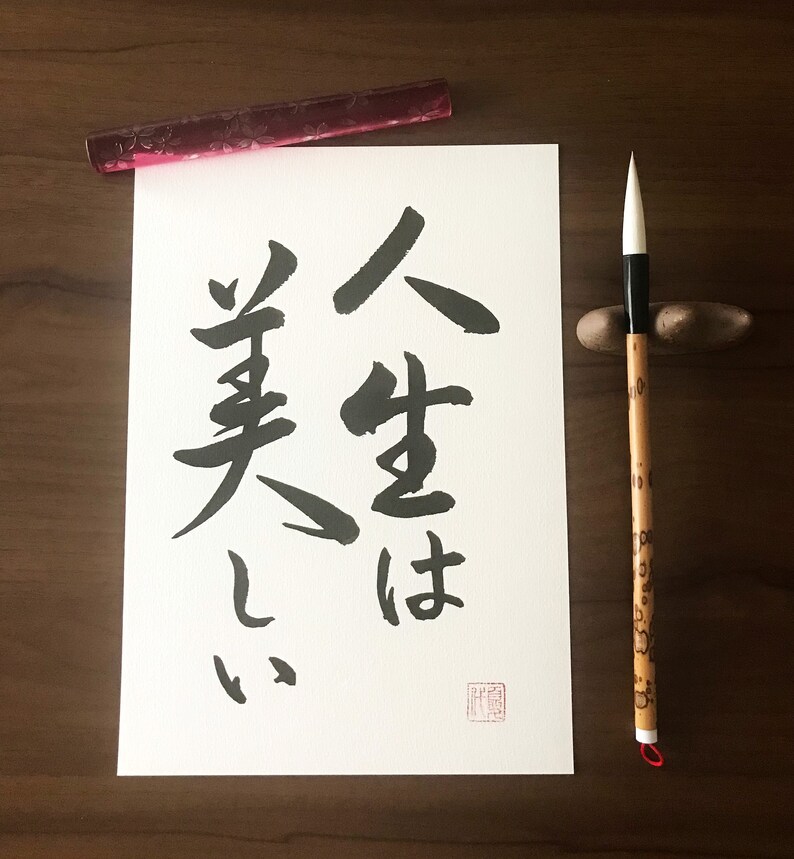 人生は
美しい